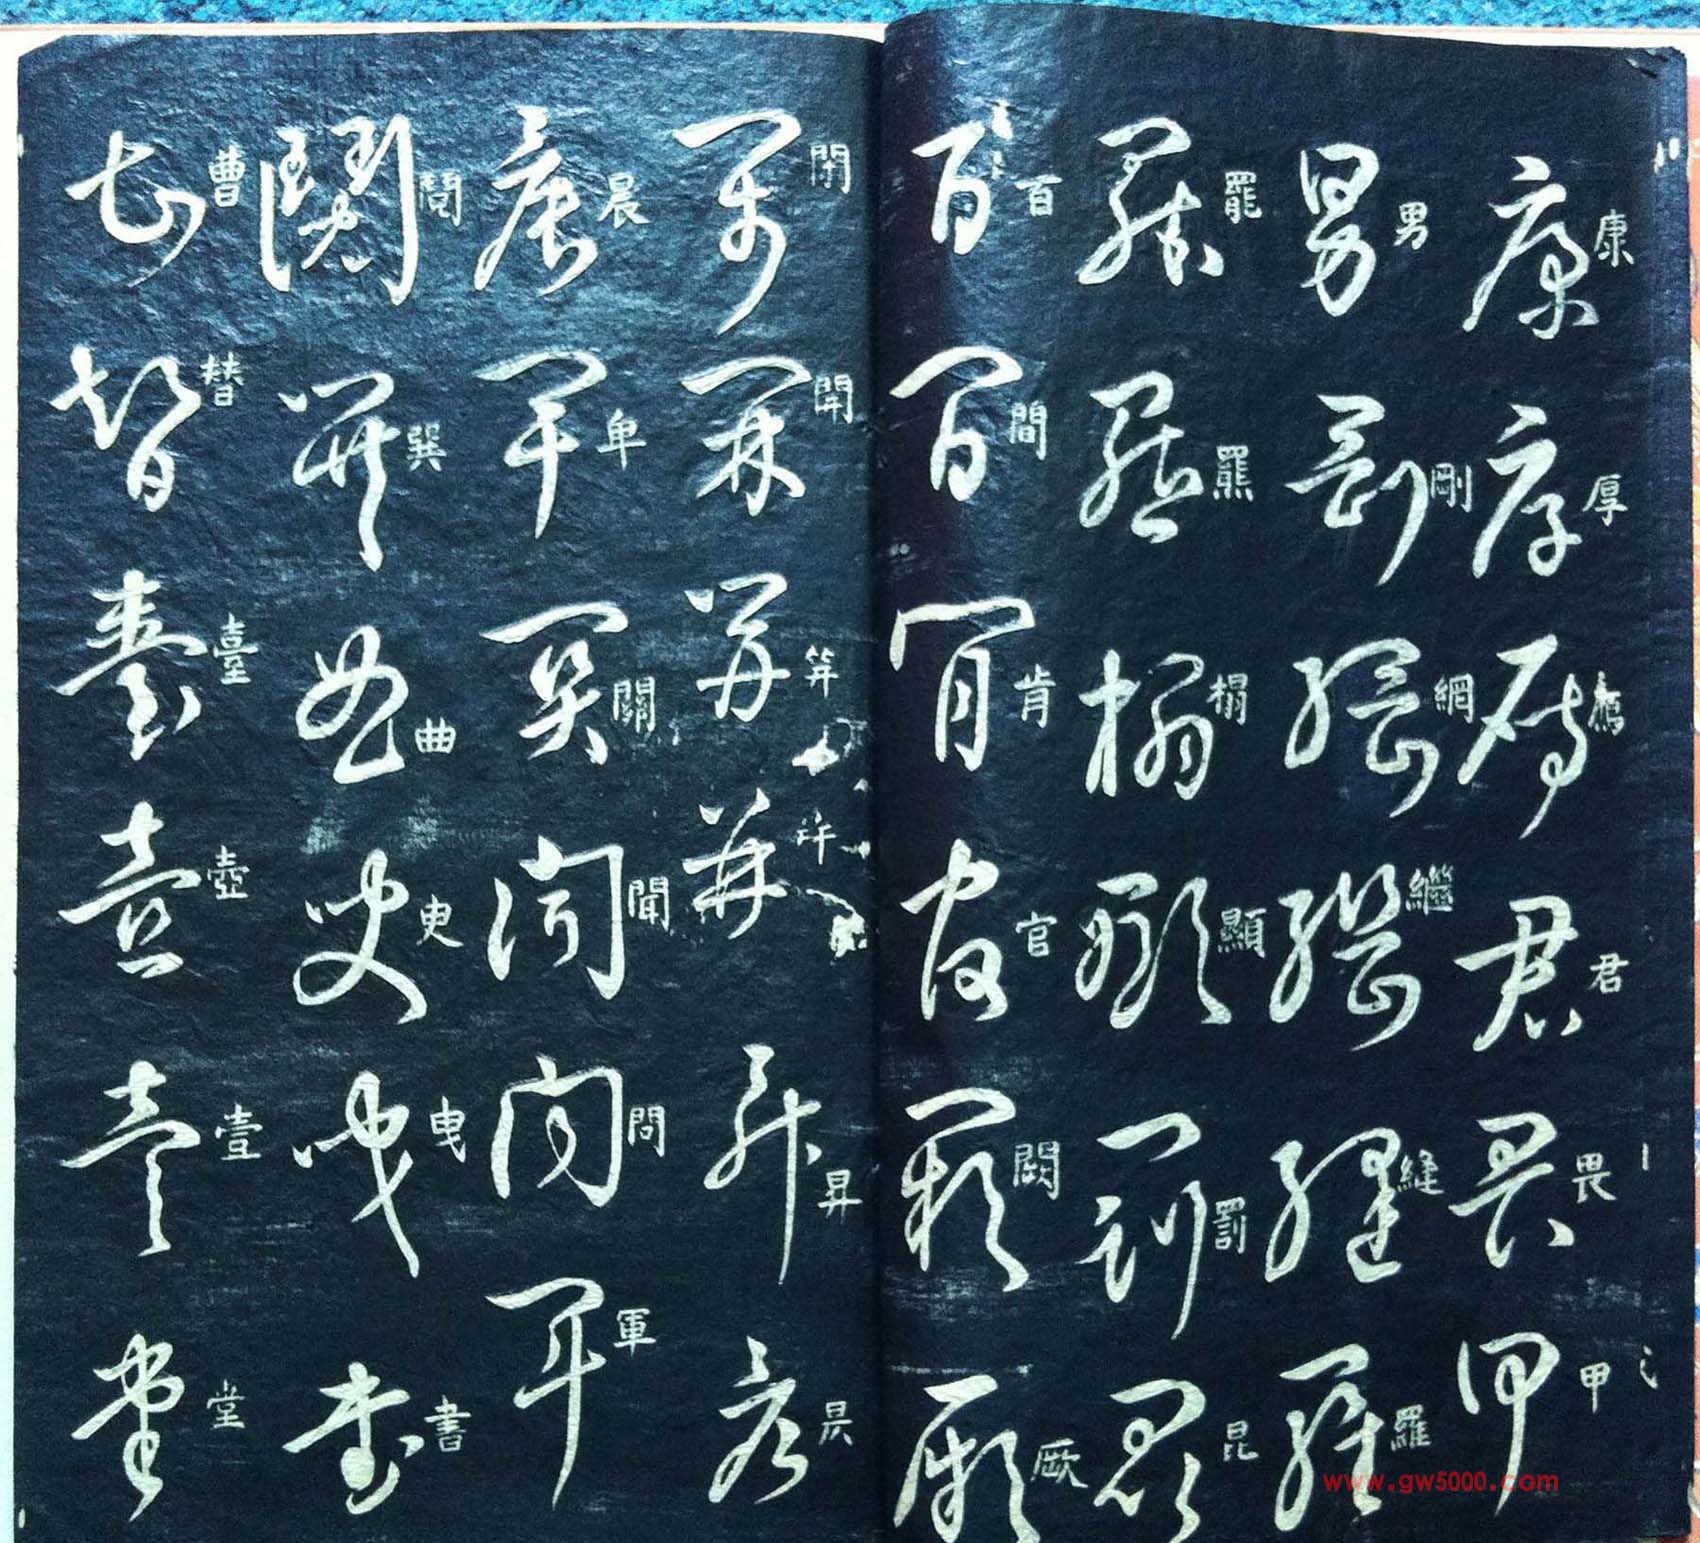 康 厚 廌 君 畏 甲
男 剛 網 繼 縫 羅
罷 羆 榻 顯 罰 昆
百 間 肯 官 闕 厥
閉 開 笄 并 昇 昃
晨 単 關 聞 問 軍
鬧 巽 曲 曳 曳 書
曹 替 臺 壺 壹 堂
www.gw5000.com